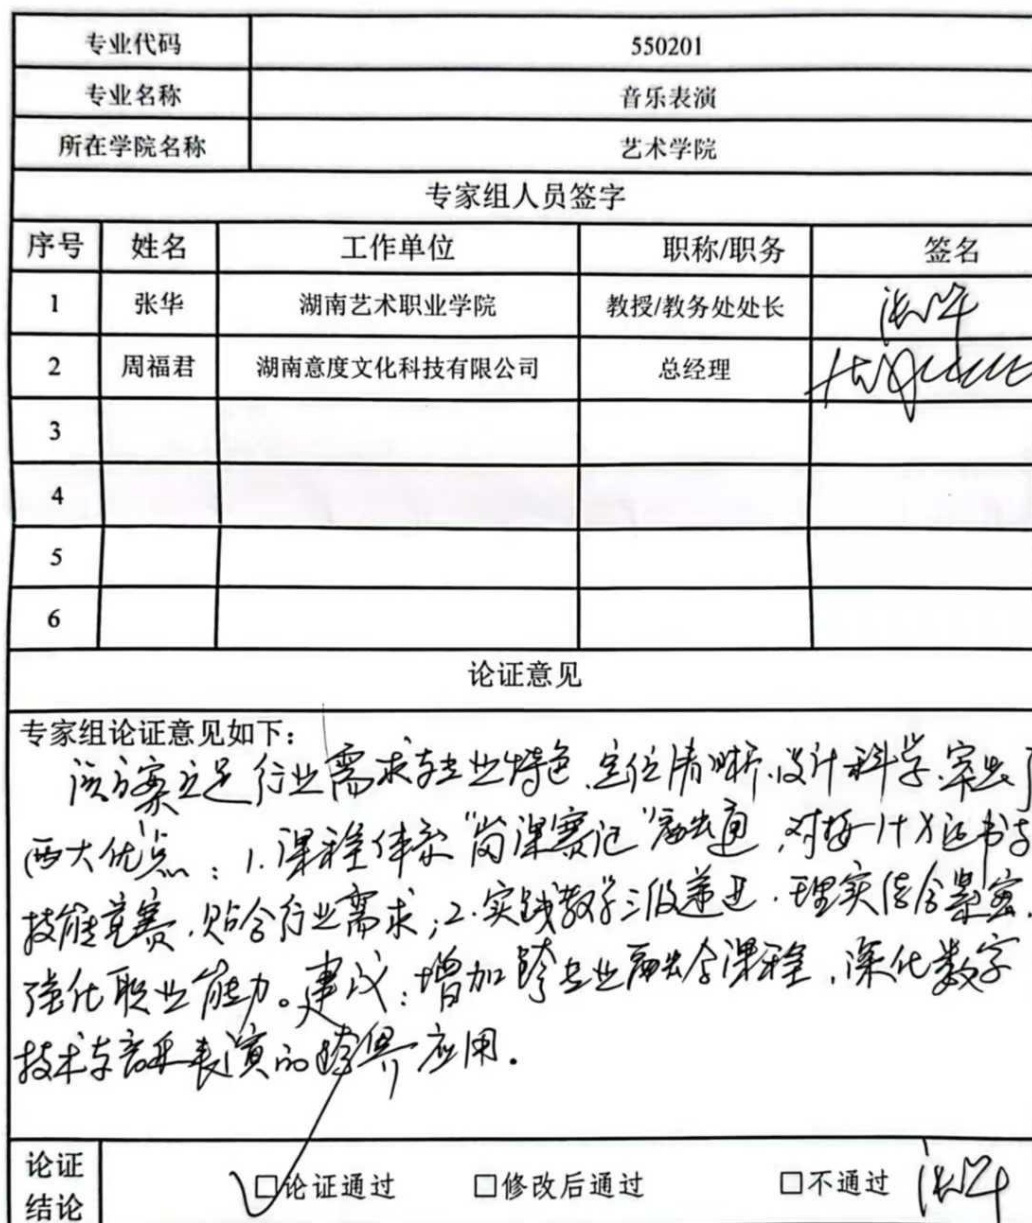 专业代码 550201
专业名称 音乐表演
所在学院名称 艺术学院
专家组人员签字
序号 姓名 工作单位 职称/职务 签名
1 张华 湖南艺术职业学院 教授/教务处处长 张华
2 周福君 湖南意度文化科技有限公司 总经理
3
4
5
6
论证意见
专家组论证意见如下:
该方案立足行业需求与专业特色,定位清晰,设计科学,突出了
两大优点:1.课程体系“岗课赛证”融通,对接1+X证书与
技能竞赛,贴合行业需求;2.实践教学三级递进,理实结合紧密,
强化职业能力。建议:增加跨专业融合课程,深化数字
技术与音乐表演的跨界应用。
论证
结论 □论证通过 □修改后通过 □不通过 张华